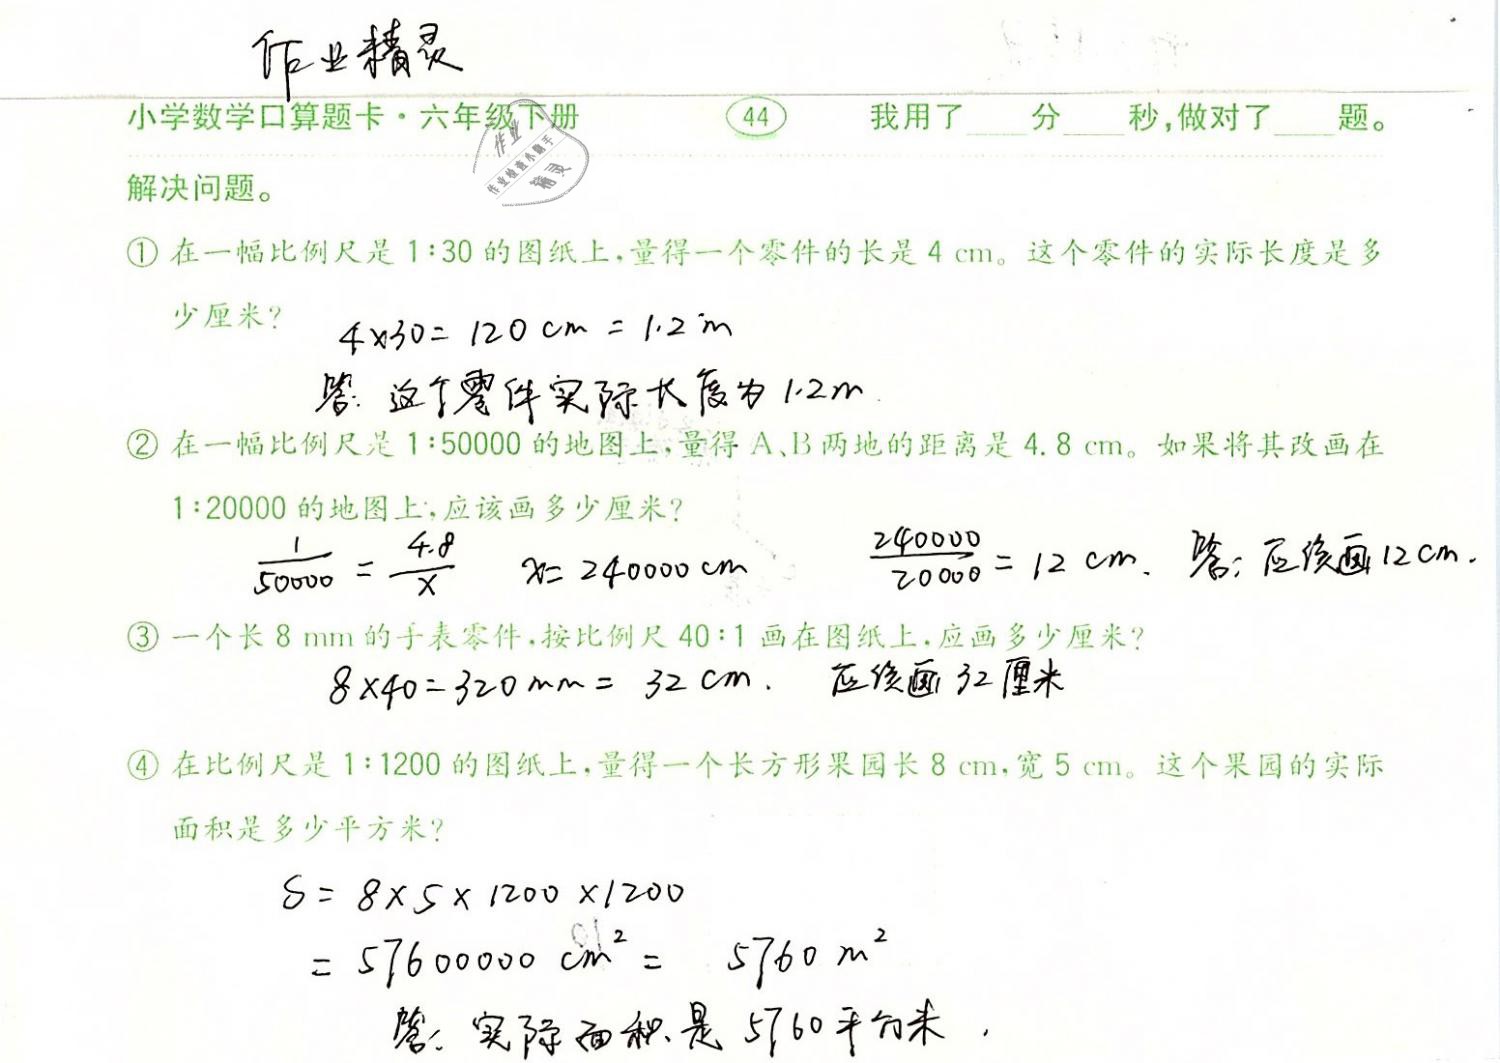 作业精灵
小学数学口算题卡·六年级下册 44 我用了____分____秒,做对了____题。
作业
作业检查小助手
精灵
解决问题。
① 在一幅比例尺是 1:30 的图纸上,量得一个零件的长是 4 cm。这个零件的实际长度是多
少厘米?
4×30= 120 cm = 1.2 m
答: 这个零件实际长度为 1.2m.
② 在一幅比例尺是 1:50000 的地图上,量得 A、B 两地的距离是 4.8 cm。如果将其改画在
1:20000 的地图上,应该画多少厘米?
1/50000 = 4.8/x x= 240000 cm 240000/20000 = 12 cm. 答: 应该画 12 cm.
③ 一个长 8 mm 的手表零件,按比例尺 40:1 画在图纸上,应画多少厘米?
8×40=320mm= 32 cm. 应该画 32 厘米
④ 在比例尺是 1:1200 的图纸上,量得一个长方形果园长 8 cm,宽 5 cm。这个果园的实际
面积是多少平方米?
S= 8×5×1200×1200
= 57600000 cm² = 5760 m²
答: 实际面积是 5760平方米.